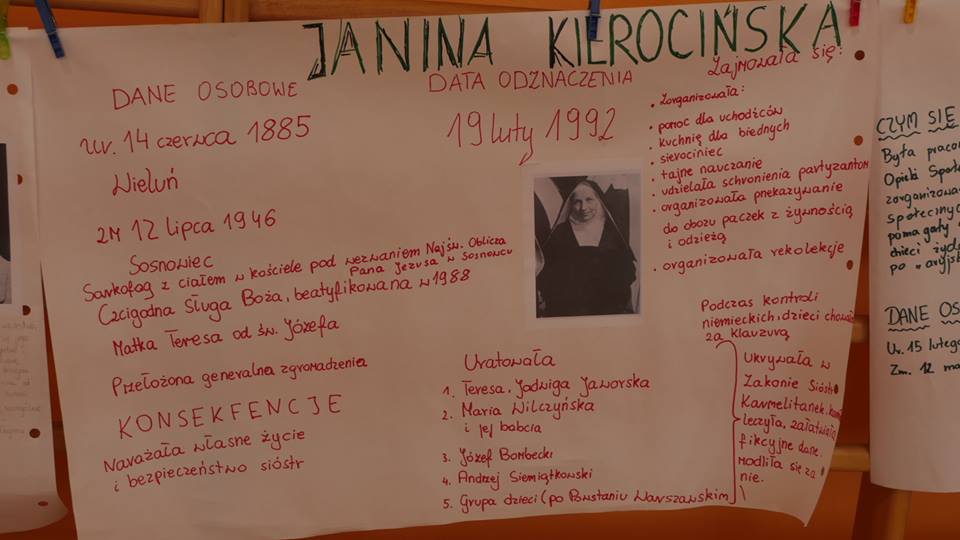 JANINA KIEROCIŃSKA
DANE OSOBOWE
Ur. 14 czerwca 1885
Wieluń
zm 12 lipca 1946
Sosnowiec
Sarkofag z ciałem w kościele pod wezwaniem Najśw. Oblicza
Pana Jezusa w Sosnowcu
Czcigodna Sługa Boża, beatyfikowana w 1988
Matka Teresa od św. Józefa
Przełożona generalna zgromadzenia
KONSEKFENCJE
Narażała własne życie
i bezpieczeństwo sióstr
DATA ODZNACZENIA
19 luty 1992
Uratowała
1. Teresa Jadwiga Jaworska
2. Maria Wilczyńska
i jej babcia
3. Józef Bombecki
4. Andrzej Siemiątkowski
5. Grupa dzieci (po Powstaniu Warszawskim)
Zajmowała się:
• Zorganizowała:
• pomoc dla uchodźców
• kuchnię dla biednych
• sierociniec
• tajne nauczanie
• udzielała schronienia partyzantom
• organizowała przekazywanie
do obozu paczek z żywnością
i odzieżą
• organizowała rekolekcje
Podczas kontroli
niemieckich, dzieci
za klauzurą
Ukrywała w
Zakonie Sióstr
Karmelitanek,
leczyła, załatwiała
fikcyjne dane.
modliła się za
nie.
CZYM SIĘ
Była
Opieki
pomagały
dzieci
po
DANE
Ur. 15 lutego
Zm. 12